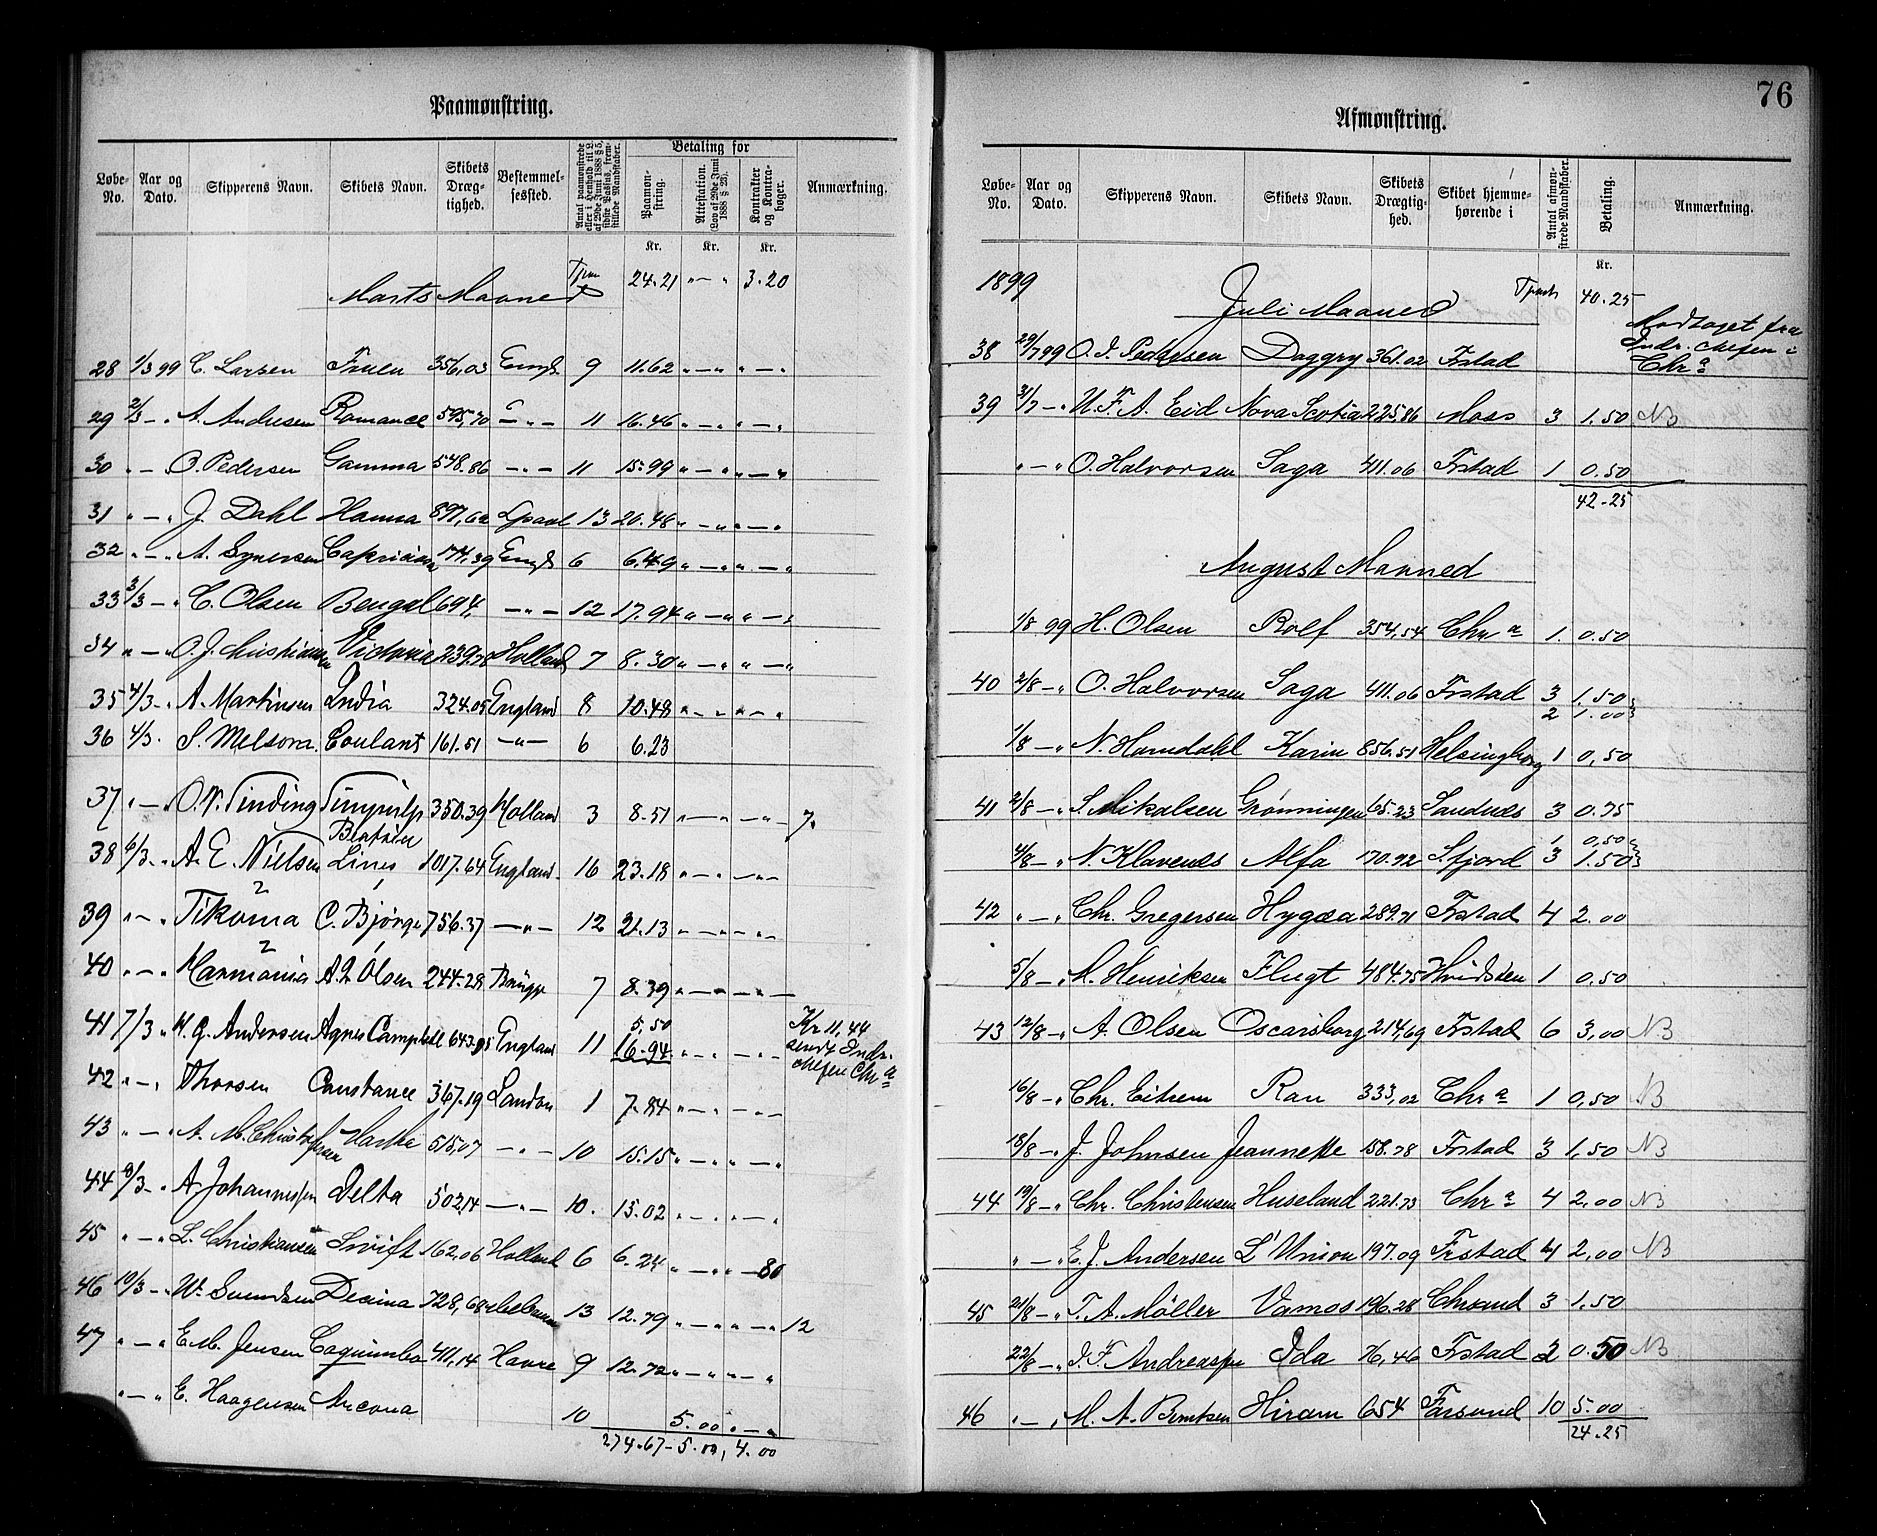 Paamønstring.
Løbe-No. Aar og Dato. Skipperens Navn. Skibets Navn. Skibets Dræg-tighed. Bestemmel-sessted. Antal paamønstrede eller i Henhold til L. af 29de Juni 1888 § 5, sidste Passus, frem-stillede Mandskaber. Betaling for Paamøn-string. Attestation. (Lov af 29de Juni 1888 § 28). Kontrakter og Kontra-bøger. Anmærkning.
Kr. Kr. Kr.
Marts Maaned 24.21 " — " 3.20
28 1/3 99 C. Larsen Fruen 356,03 Engl. 9 11.62 " — " " — "
29 2/3 — " A. Andresen Romance 595,70 " — " 11 16.46 " — " " — "
30 " — " O. Pedersen Gamma 548.86 — " — 11 15.99 " — " " — "
31 " — " J. Dahl Hanna 897,62 13 20.48 " — " " — "
32 " — " A. 174,39 Engl 6 6.49 " — " " — "
33 3/3 — " C. Olsen Bengal 694, — " — 12 17.94 " — " " — "
34 " — " O. J. Christiansen Victoria 239,78 Holland 7 8.30 " — " " — "
35 4/3 - " A. Martinsen India 324.05 England 8 10.48 " — " " — "
36 4/3 . S. Melsom. Coulant 161.51 — " — 6 6.23
37 " — " O. N. Tinding 350.39 Holland 3 8.51 " — " — " 7.
38 6/3 - " A. E. Nielsen Lines 1017.64 England 16 23.18 " — " — " —
39 " — " Tikoma C. Bjørge 756.37 — " — 12 21.13 " — " — " —
40 " — " Harmonia A. L. Olsen 244.28 Brügge 7 8.39 " — " — " —
5,50 Kr 11,44
41 7/3 " H. G. Andersen Agnes Campbell 643.95 England 11 16.94 " — " — " sendt Indr.
chefen Chr a
42 " — " Thorsen Constance 367.19 London 1 7.84 " — " — " —
43 " — " A. M. Christoffersen 515,07 — " — 10 15.15 " — " " — "
44 8/3 - " A. Johannessen Delta 502,14 — " — 10. 15.02 " — " " — "
45 " — " L. Christiansen Swift 162,06 Holland 6 6.24 " — " " — 80
46 10/3 — " W. Svendsen Decima 728,68 13 12.79 " — " " — " 12
47 " — " E. M. Jensen Coquimbo 411,14 Havre 9 12.72 " — " " — "
" — " E. Haagensen Ancona 10 5.00 " — "
274.67 - 5.00, 4.00
76
Afmønstring.
Løbe-No. Aar og Dato. Skipperens Navn. Skibets Navn. Skibets Drægtig-hed. Skibet hjemme-hørende i Antal afmøn-strede Mandskaber. Betaling. Anmærkning.
Kr.
1899 Juli Maaned 40.25
Modtaget fra
38 29/7 99 O. J. Pedersen Daggry 361.02 Frstad Indr. chefen i
Chr a
39 31/7 — " U. F. A. Eid Nova Scotia 225,86 Moss 3 1.50 NB
" — " O. Halvorsen Saga 411.06 Frstad 1 0.50
42-25
August Maaned
1/8 99 H. Olsen Rolf 354,54 Chr a 1. 0.50
40 2/8 — " O. Halvorsen Saga 411.06 Frstad 3 1.50
2 1.00
1/8 — " N. Horndahl Karin 856.51 Helsingborg 1 0,50
41 2/8 — " S. Mikalsen Grønningen 65.23 Sandnes 3 0.75
1 0,50
4/8 — " N. Klavenes Alfa 170.92 S.fjord 3 1.50
42 " — " Chr. Gregersen Hygæa 289.71 Frstad 4 2.00
5/8 — " M. Henriksen Flugt 484.75 Hvidsten 1 0.50
43 12/8 — " A. Olsen Oscarsborg 214,69 Frstad 6 3,00 NB
16/8 — " Chr. Eitrem Ran 333,02 Chr a 1 0,50 NB
18/8 — " J. Johnsen Jeannette 158.78 Frstad 3 1,50 NB
44 19/8 — " Chr. Christensen Huseland 221.73 Chr a 4 2,00 NB
" — " E. J. Andersen L'Union 197.09 Frstad 4 2,00 NB
45 21/8 — " T. A. Möller Vamos 196.28 Chrsand 3 1.50
22/8 — " J. F. Andreassen Ida 76,46 Frstad 2 0.50 NB
46 " — " M. A. Berntsen Hiram 654 Farsund 10 5.00
24.25